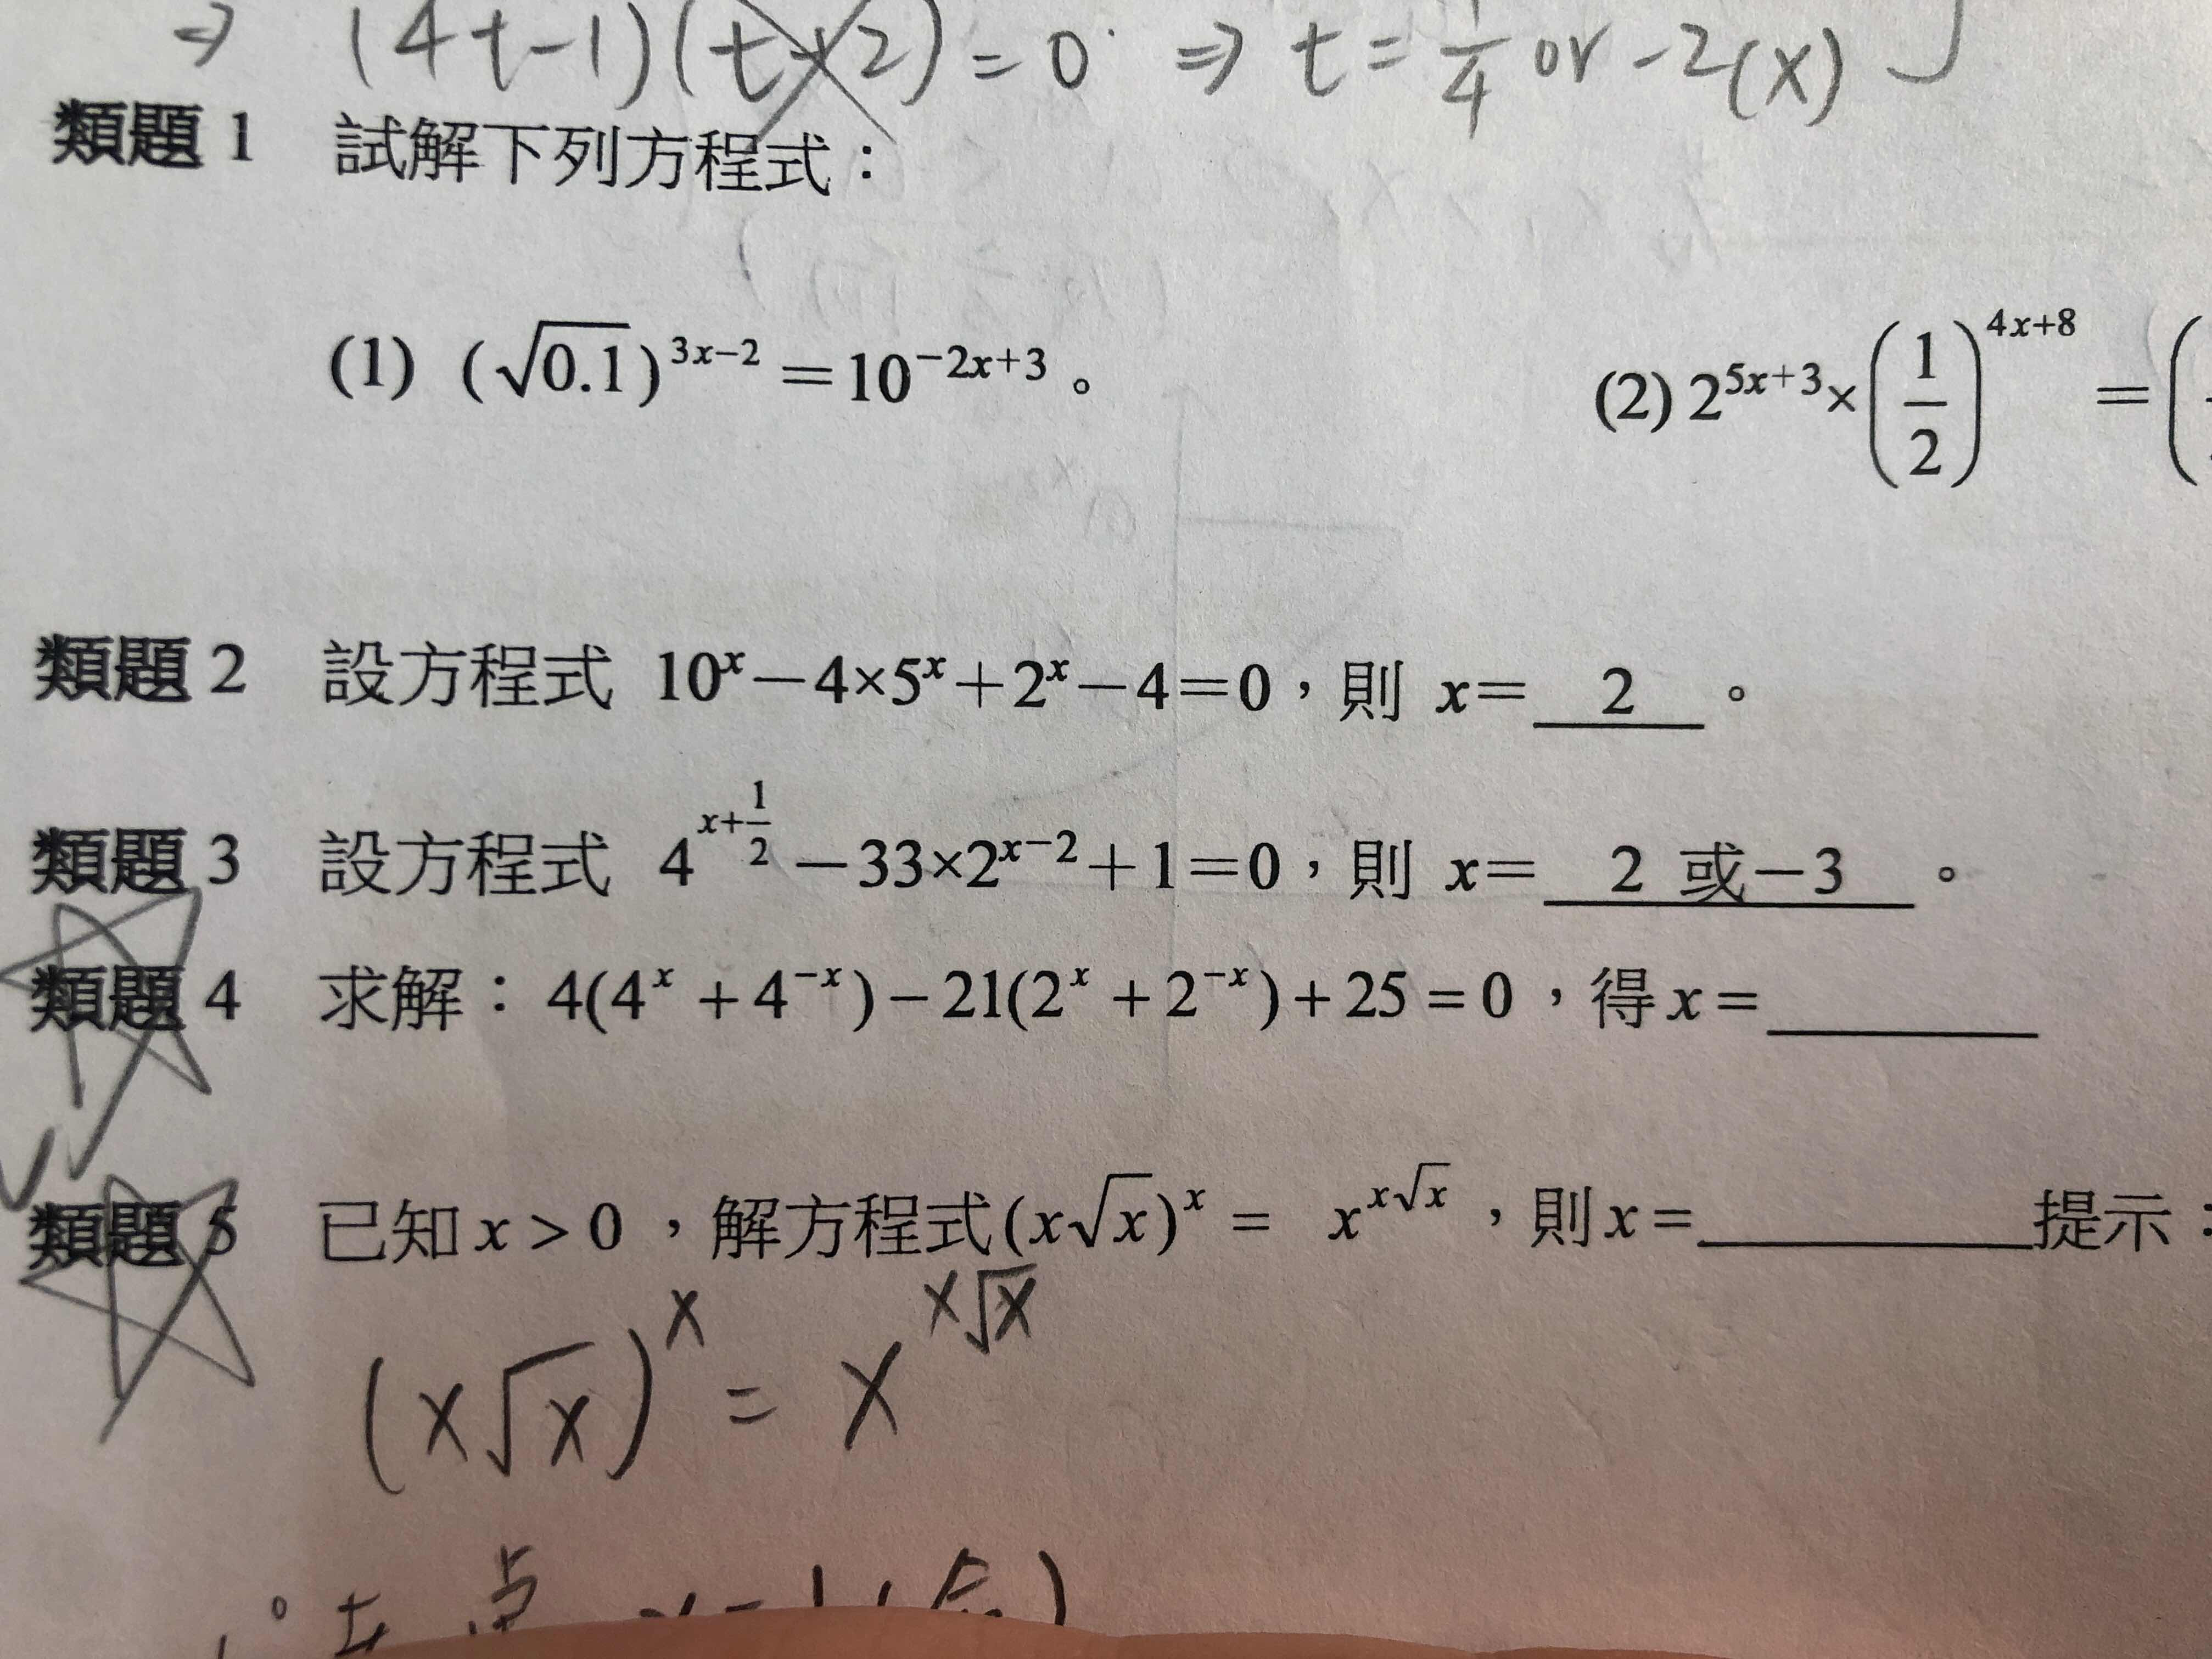 ⇒ (4t-1)(t+2)=0 ⇒ t=1/4 or -2(x)
類題 1 試解下列方程式：
(1) (√0.1)^(3x−2)＝10^(−2x+3)。 (2) 2^(5x+3)×(1/2)^(4x+8)＝(
類題 2 設方程式 10^x－4×5^x＋2^x－4＝0，則 x＝ 2 。
類題 3 設方程式 4^(x+1/2)－33×2^(x−2)＋1＝0，則 x＝ 2 或－3 。
類題 4 求解：4(4^x + 4^(−x)) − 21(2^x + 2^(−x)) + 25 = 0，得 x = ______
類題 5 已知 x > 0，解方程式 (x√x)^x = x^(x√x)，則 x = ______ 提示：
(x√x)^x = x^(x√x)